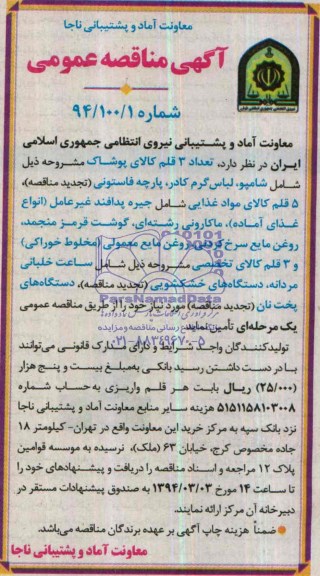 معاونت آماد و پشتیبانی ناجا
آگهی مناقصه عمومی
شماره ۹۴/۱۰۰/۱
معاونت آماد و پشتیبانی نیروی انتظامی جمهوری اسلامی
ایران در نظر دارد، تعداد ۳ قلم کالای پوشاک مشروحه ذیل
شامل شامپو، لباس گرم کادر، پارچه فاستونی (تجدید مناقصه)،
۵ قلم کالای مواد غذایی شامل جیره پدافند غیرعامل (انواع
غذای آماده)، ماکارونی رشته‌ای، گوشت قرمز منجمد،
روغن مایع سرخ کردنی، روغن مایع معمولی (مخلوط خوراکی)
و ۳ قلم کالای تخصصی مشروحه ذیل شامل ساعت خلبانی
مردانه، دستگاه‌های خشکشویی (تجدید مناقصه)، دستگاه‌های
پخت نان (تجدید مناقصه) مورد نیاز خود را از طریق مناقصه عمومی
یک مرحله‌ای تأمین نماید.
تولیدکنندگان واجد شرایط و دارای مدارک قانونی می‌توانند
با در دست داشتن رسید بانکی به‌مبلغ بیست و پنج هزار
(۲۵/۰۰۰) ریال بابت هر قلم واریزی به‌حساب شماره
۵۱۵۱۱۵۸۱۰۳۰۰۸ هزینه سایر منابع معاونت آماد و پشتیبانی ناجا
نزد بانک سپه به مرکز خرید این معاونت واقع در تهران- کیلومتر ۱۸
جاده مخصوص کرج، خیابان ۶۳ (ملک)، نرسیده به موسسه قوامین
پلاک ۱۲ مراجعه و اسناد مناقصه را دریافت و پیشنهادهای خود را
تا ساعت ۱۴ مورخ ۱۳۹۴/۰۳/۰۳ به صندوق پیشنهادات مستقر در
دبیرخانه آن مرکز ارائه نمایند.
ضمناً هزینه چاپ آگهی بر عهده برندگان مناقصه می‌باشد.
معاونت آماد و پشتیبانی ناجا
ParsNamadData
۰۲۱-۸۸۳۴۹۶۷۰-۵